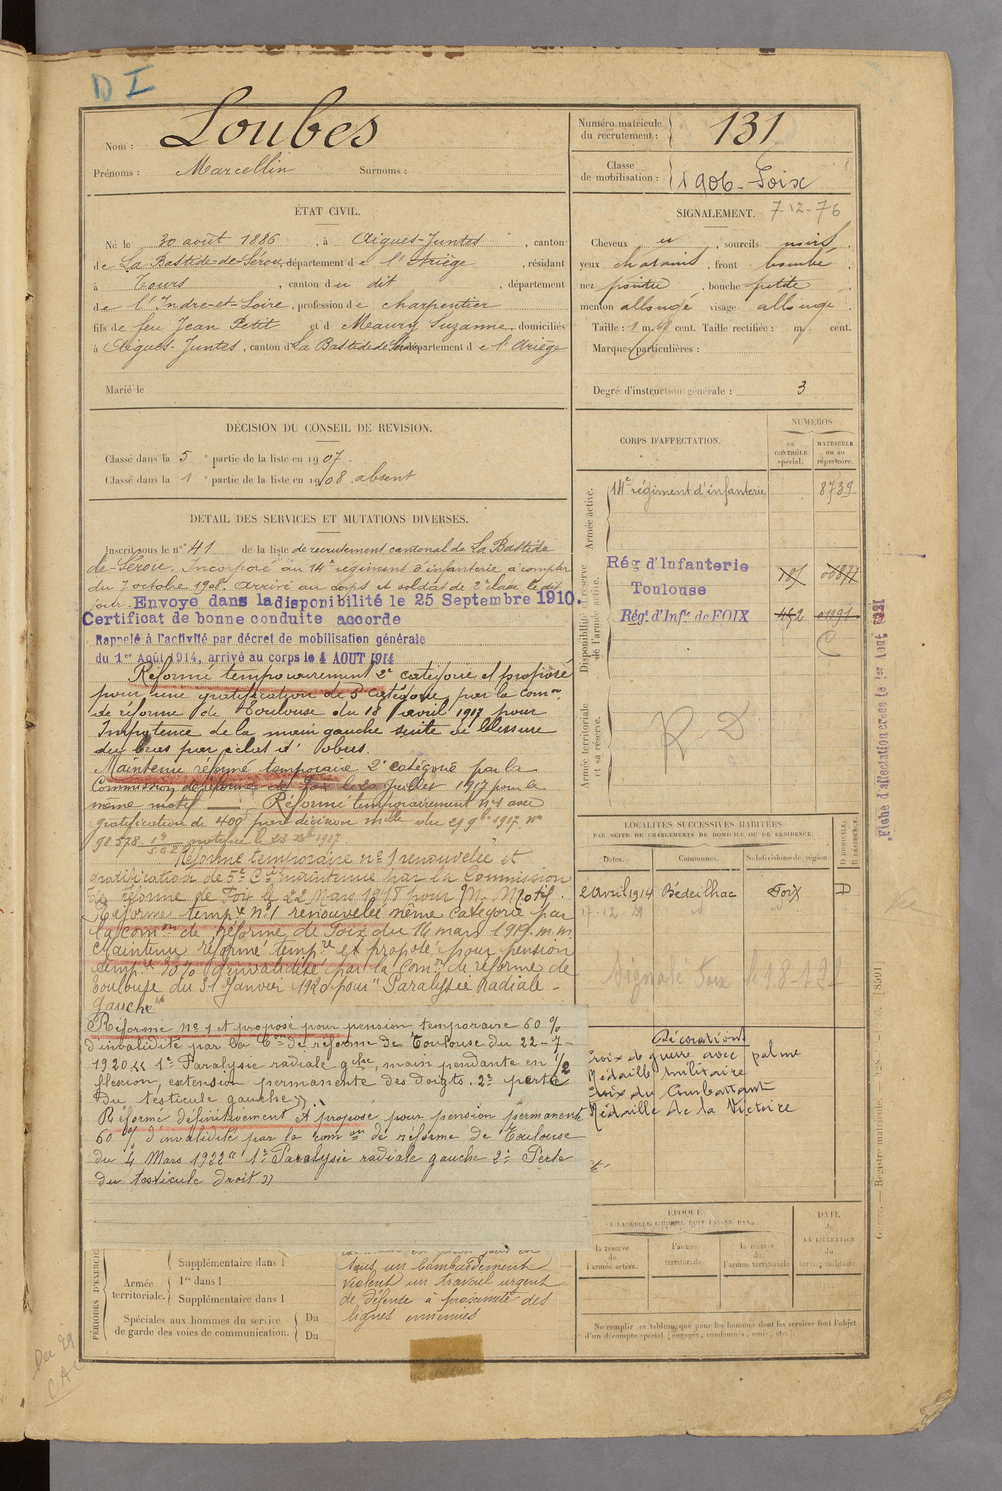 D I
Nom : Loubes
Prénoms : Marcellin Surnoms :
Numéro matricule du recrutement : 131
Classe de mobilisation : 1906 - Foix
ÉTAT CIVIL.
Né le 30 août 1886, à Aigues-Juntes, canton
de La Bastide-de-Sérou, département de l'Ariège, résidant
à Tours, canton du dit, département
de l'Indre-et-Loire, profession de charpentier
fils de feu Jean Petit et d Meaury Suzanne, domiciliés
à Aigues-Juntes, canton d La Bastide de Sérou département de l'Ariège
Marié le
SIGNALEMENT. 7-12-76
Cheveux , sourcils noirs,
yeux chatains, front bombé,
nez pointu, bouche petite,
menton allongé visage allongé
Taille : 1 m. 68 cent. Taille rectifiée : m. cent.
Marques particulières :
Degré d'instruction générale : 3
DÉCISION DU CONSEIL DE REVISION.
Classé dans la 5e partie de la liste en 1907.
Classé dans la 1e partie de la liste en 1908. absent
DÉTAIL DES SERVICES ET MUTATIONS DIVERSES.
Inscrit sous le n° 41 de la liste de recrutement cantonal de La Bastide
de-Sérou. Incorporé au 14e régiment d'infanterie à compter
du 7 octobre 1908. arrivé au corps et soldat de 2e classe le dit
jour. Envoyé dans la disponibilité le 25 Septembre 1910.
Certificat de bonne conduite accorde
Rappelé à l'activité par décret de mobilisation générale
du 1er Août 1914, arrivé au corps le 4 AOUT 1914
Réformé temporairement 2e catégorie et proposé
pour une gratification de 5e catégorie par la comon
de réforme de Toulouse du 18 avril 1917 pour
Impotence de la main gauche suite de blessure
du bras par éclat d'obus.
Maintenu réformé temporaire 2e catégorie par la
Commission de réforme de Foix le 20 Juillet 1917 pour le
même motif — Réformé temporairement n°1 avec
gratification de 400f par décision mlle du 29 9bre 1917. N°
98578. notifiée le 23 1917
Réforme temporaire n°1 renouvelée et
gratification de 5e Cie maintenue par la Commission
de réforme de Foix le 22 Mars 1918 pour M. Motif.
Réforme tempre n°1 renouvelée même catégorie par
la comon de Réforme de Foix du 14 mars 1919. m.m
Maintenu réformé tempre et proposé pour pension
tempre 30% d'invalidité par la Comon de réforme de
Toulouse du 31 Janvier 1920 pour "Paralysie Radiale -
gauche"
Réforme N° 1 et proposé pour pension temporaire 60 %
d'invalidité par la Con de réforme de Toulouse du 22-7-
1920 « 1° Paralysie radiale gche, main pendante en 1/2
flexion, extension permanente des doigts. 2° perte
du testicule gauche ».
Réformé définitivement et proposé pour pension permanente
60 % d'invalidité par la comon de réforme de Toulouse
du 4 Mars 1922 " 1° Paralysie radiale gauche 2° Perte
du testicule droit »
CORPS D'AFFECTATION.
NUMÉROS
au CONTRÔLE spécial.
MATRICULE ou au répertoire.
Armée active.
14e régiment d'infanterie 8739
Disponibilité et réserve de l'armée active.
Rég. d'Infanterie
Toulouse
Rég. d'Infie de FOIX 452 01191
Armée territoriale et sa réserve.
R D
LOCALITÉS SUCCESSIVES HABITÉES
PAR SUITE DE CHANGEMENTS DE DOMICILE OU DE RÉSIDENCE.
Dates. Communes. Subdivisions de région. D DOMICILE. R RÉSIDENCE.
2 avril 1914 Bédeilhac Foix D
Décorations
Croix de guerre avec palme
Médaille militaire
Croix du Combattant
Médaille de la Victoire
ÉPOQUE
À LAQUELLE L'HOMME DOIT PASSER DANS
la réserve de l'armée active.
l'armée territoriale.
la réserve de l'armée territoriale.
DATE de LA LIBÉRATION du service militaire.
Ne remplir ce tableau que pour les hommes dont les services font l'objet
d'un décompte spécial (engagés, condamnés, omis, etc.).
PÉRIODES D'EXERCICES
Armée territoriale.
Supplémentaire dans l
1re dans l
Supplémentaire dans l
Spéciales aux hommes du service
de garde des voies de communication. Du
Du
sous un bombardement
violent un travail urgent
de défense à proximité des
lignes ennemies
Fiche d'affectation créée le 1er Août
Registre matricule.
[8591]